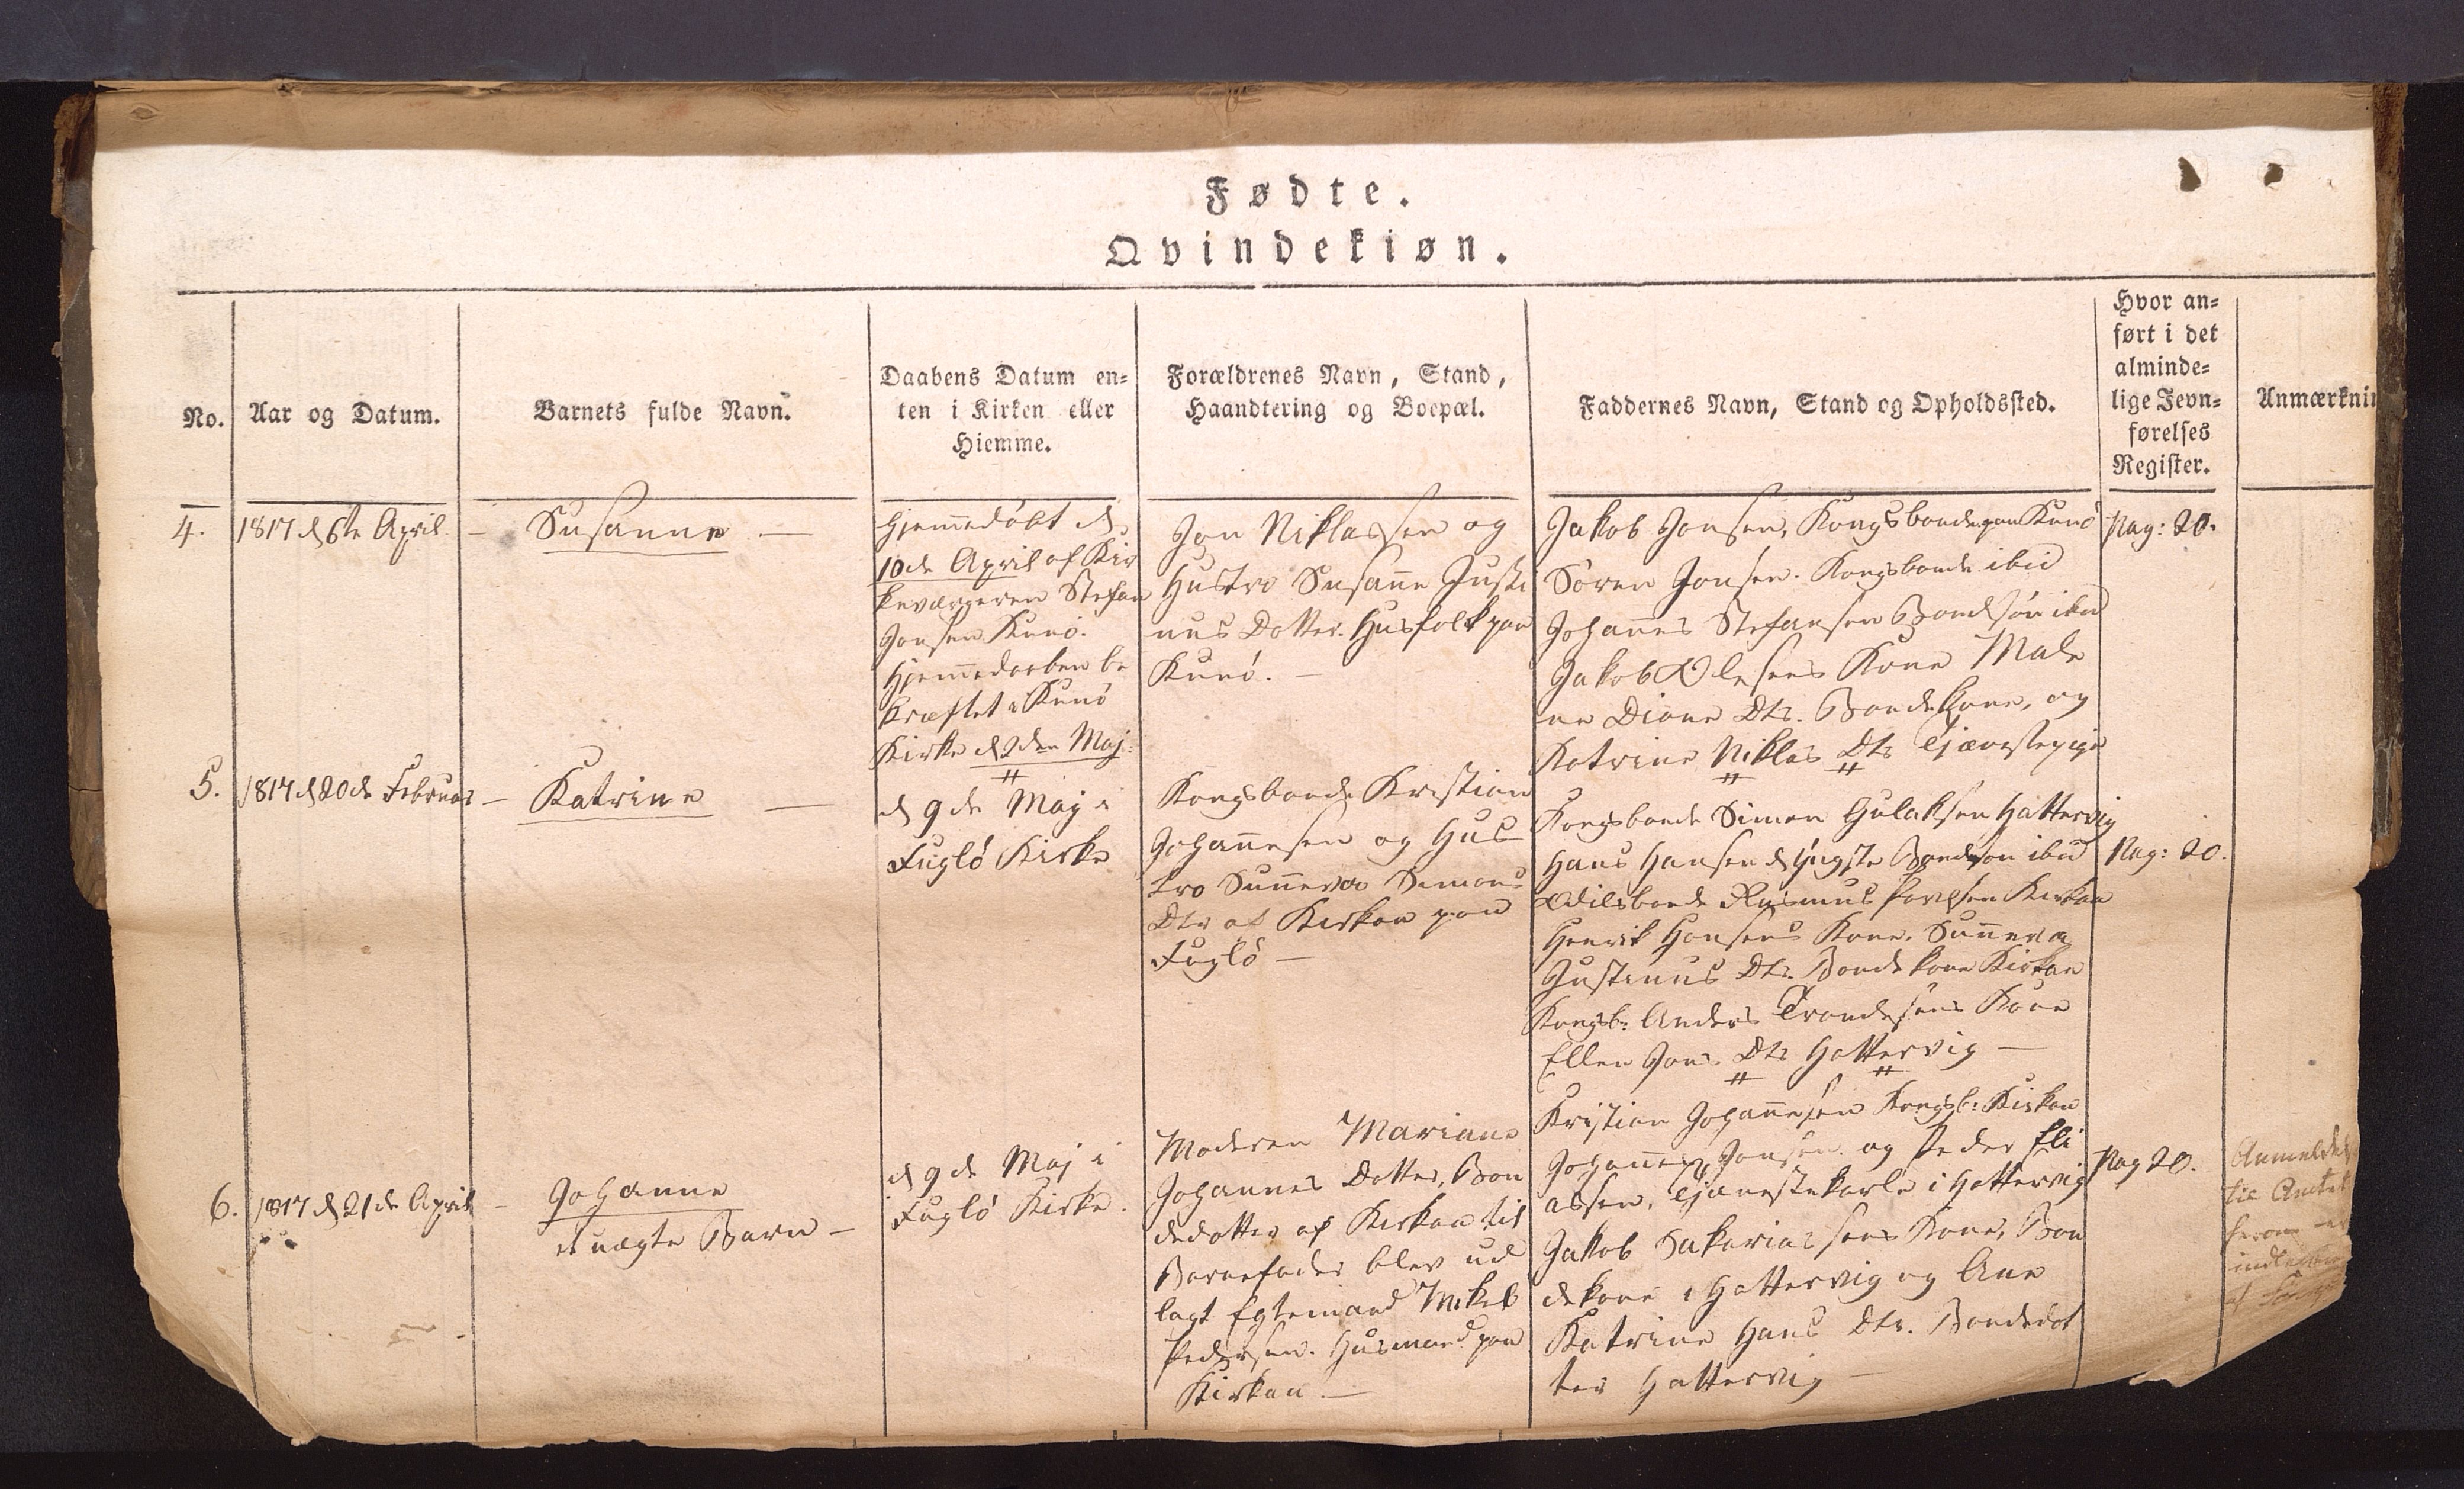 Fødte.
Qvindekiøn.
No.
Aar og Datum.
Barnets fulde Navn.
Daabens Datum en-
ten i Kirken eller
Hiemme.
Forældrenes Navn, Stand,
Haandtering og Boepæl.
Faddernes Navn, Stand og Opholdssted.
Hvor an-
ført i det
alminde-
lige Jevn-
førelses
Register.
Anmærknin
4.
1817 d 6te April
- Susanne -
Hjemmedøbt d
10de April af Kir
keværgeren Stefan
Jonsen Kunø.
Hjemmedaaben be
kræftet i Kunø
Kirke d 2den Maj.
Jon Niklassen og
Hustro Susanne Justi
nus Dotter. Husfolk paa
Kunø. -
Jakob Jonsen, Kongsbonde paa Kunø
Sören Jonsen. Kongsbonde ibid
Johannes Stefansen Bondesøn ibid
Jakob Olesens Kone Male
ne Dione Dtr. Bondekone, og
Katrine Niklas Dtr Tjænestepige
Pag: 20.
5.
1817 d 20de Februar
- Katrine -
d 9de Maj i
Fuglö Kirke
Kongsbonde Kristian
Johannesen og Hus
tro Sunneva Simons
Dtr af Kirken paa
Fuglö -
Kongsbonde Simon Gulaksen Hattervig
Hans Hansen d yngste Bondesøn ibid
Odelsbonde Rasmus Povlsen Kirken
Henrik Hansens Kone. Sunneva
Justinus Dtr. Bondekone Kirken
Kongsb: Anders Trondesens Kone
Ellen Jons Dtr Hattervig -
Pag: 20.
6.
1817 d 21de April
- Johanne
et uægte Barn -
d 9de Maj i
Fuglö Kirke.
Moderen Mariane
Johannes Dotter, Bon
dedotter af Kirken til
Barnefader blev ud
lagt Egtemand Mikel
Pedersen. Husmand paa
Kirken. -
Kristian Johannesen Kongsb: Kirken
Johannes Jonsen og Peder Eli
assen, Tjænestekarle i Hattervig
Jakob Sakariassens Kone, Bon
dekone i Hattervig og Ane
Katrine Hans Dtr. Bondedot
ter Hattervig -
Pag 20.
Anmeldel
til Amtet
herom er